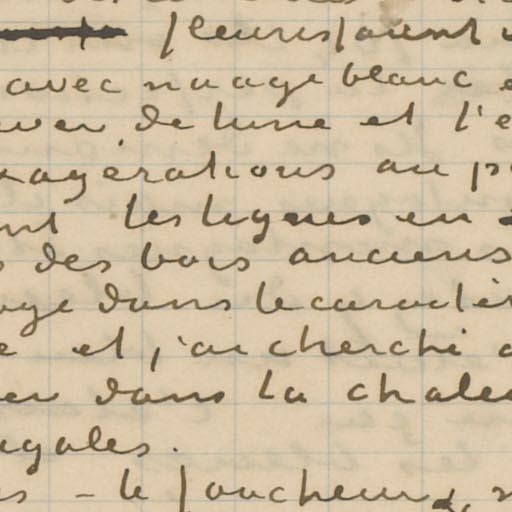 fleurissaient
avec nuage blanc
lever de lune et l'e
xagérations au po
nt les lignes en
s des bois anciens
age dans le caractèr
e et j'ai cherché
er dans la chaleu
igales.
s - le faucheur,